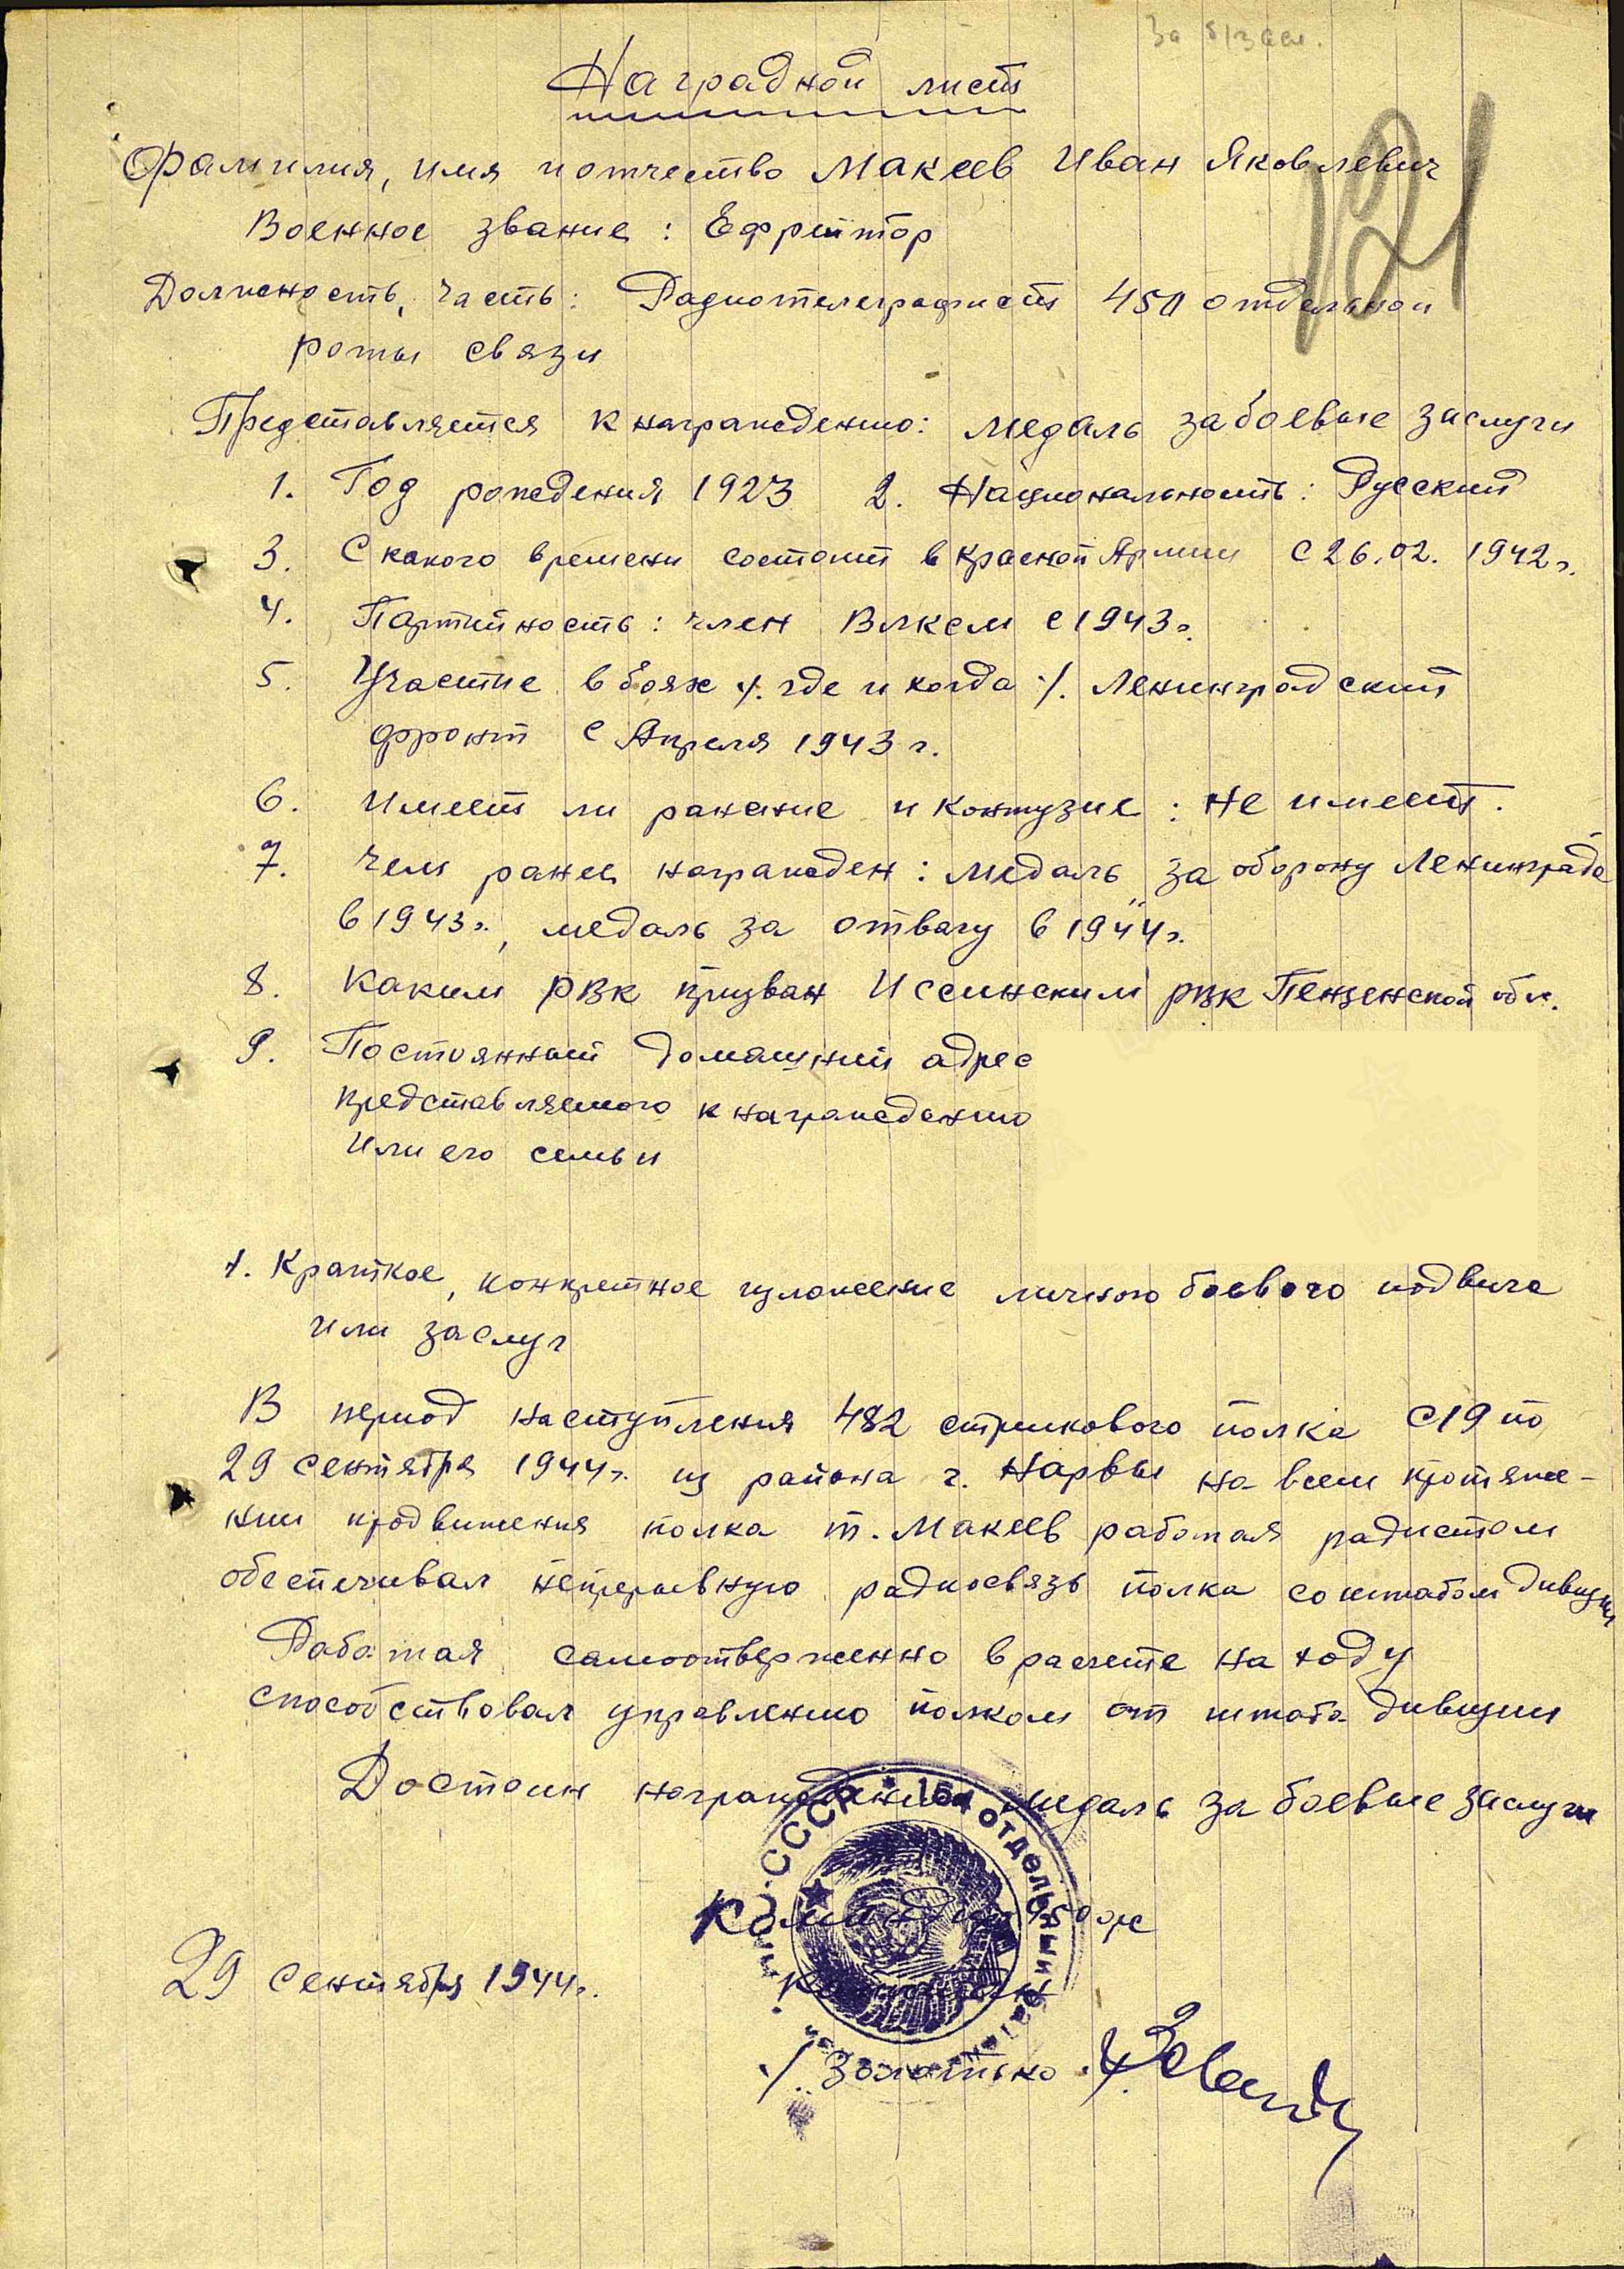 За б/засл.
Наградной лист
121
Фамилия, имя и отчество Макеев Иван Яковлевич
Военное звание: Ефрейтор
Должность, часть: Радиотелеграфист 450 отдельной
роты связи
Представляется к награждению: медаль за боевые заслуги
1. Год рождения 1923 2. Национальность: Русский
3. С какого времени состоит в Красной Армии с 26.02.1942г.
4. Партийность: член ВЛКСМ с 1943г.
5. Участие в боях /. где и когда ./. Ленинградский
фронт с Апреля 1943 г.
6. Имеет ли ранение и контузие: не имеет.
7. Чем ранее награжден: медаль „за оборону Ленинграда"
в 1943г., медаль за отвагу в 1944г.
8. Каким РВК призван Иссинским РВК Пензенской обл.
9. Постоянный домашний адрес
представляемого к награждению
или его семьи
1. Краткое, конкретное изложение личного боевого подвига
или заслуг
В период наступления 482 стрелкового полка с 19 по
29 сентября 1944г. из района г. Нарвы на всем протяже-
нии продвижения полка т. Макеев работая радистом
обеспечивал непрерывную радиосвязь полка со штабом дивизии
Работая самоотверженно в расчете на ходу
способствовал управлению полком от штаба дивизии
Достоин награждения медаль за боевые заслуги
СССР * отдельный
Командир 450 орс
капитан
29 сентября 1944г.
/. Золотько ./.